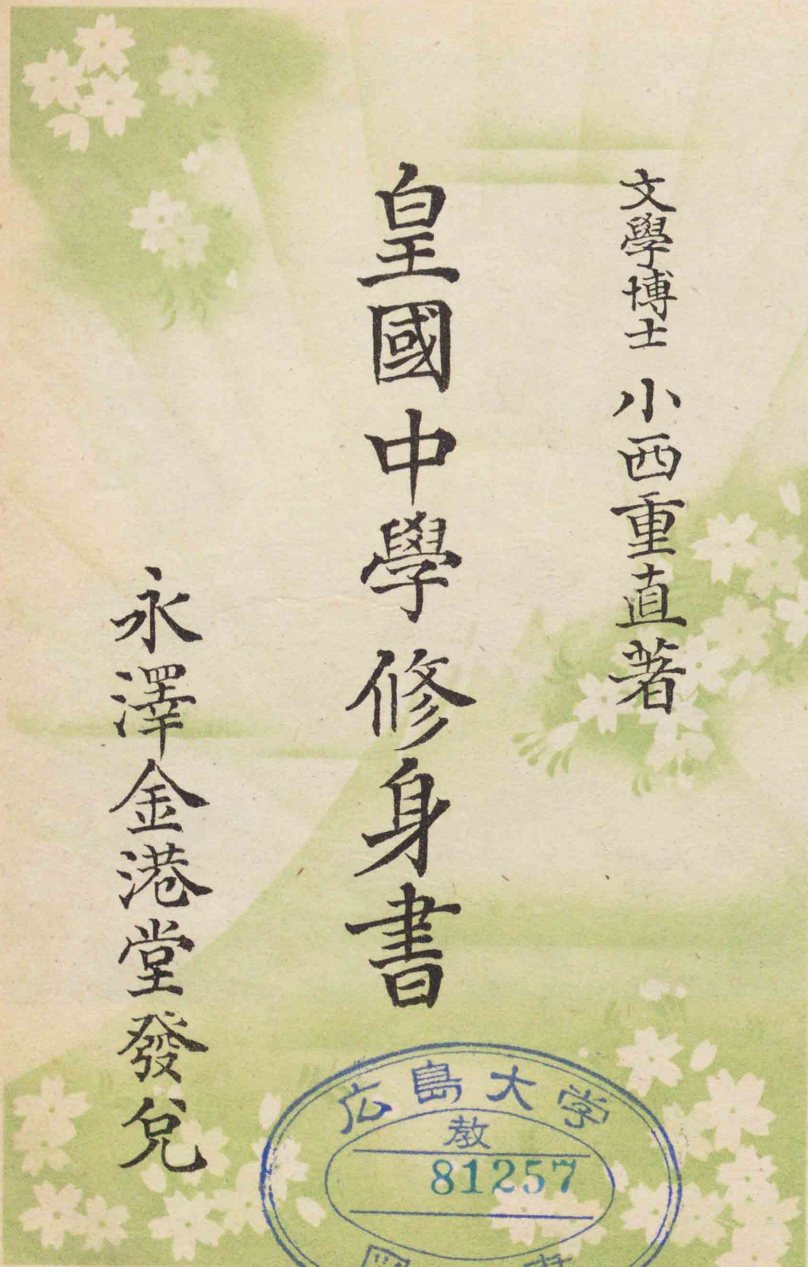 文學博士 小西重直著
皇國中學修身書
永澤金港堂發兌
広島大学
教
81257